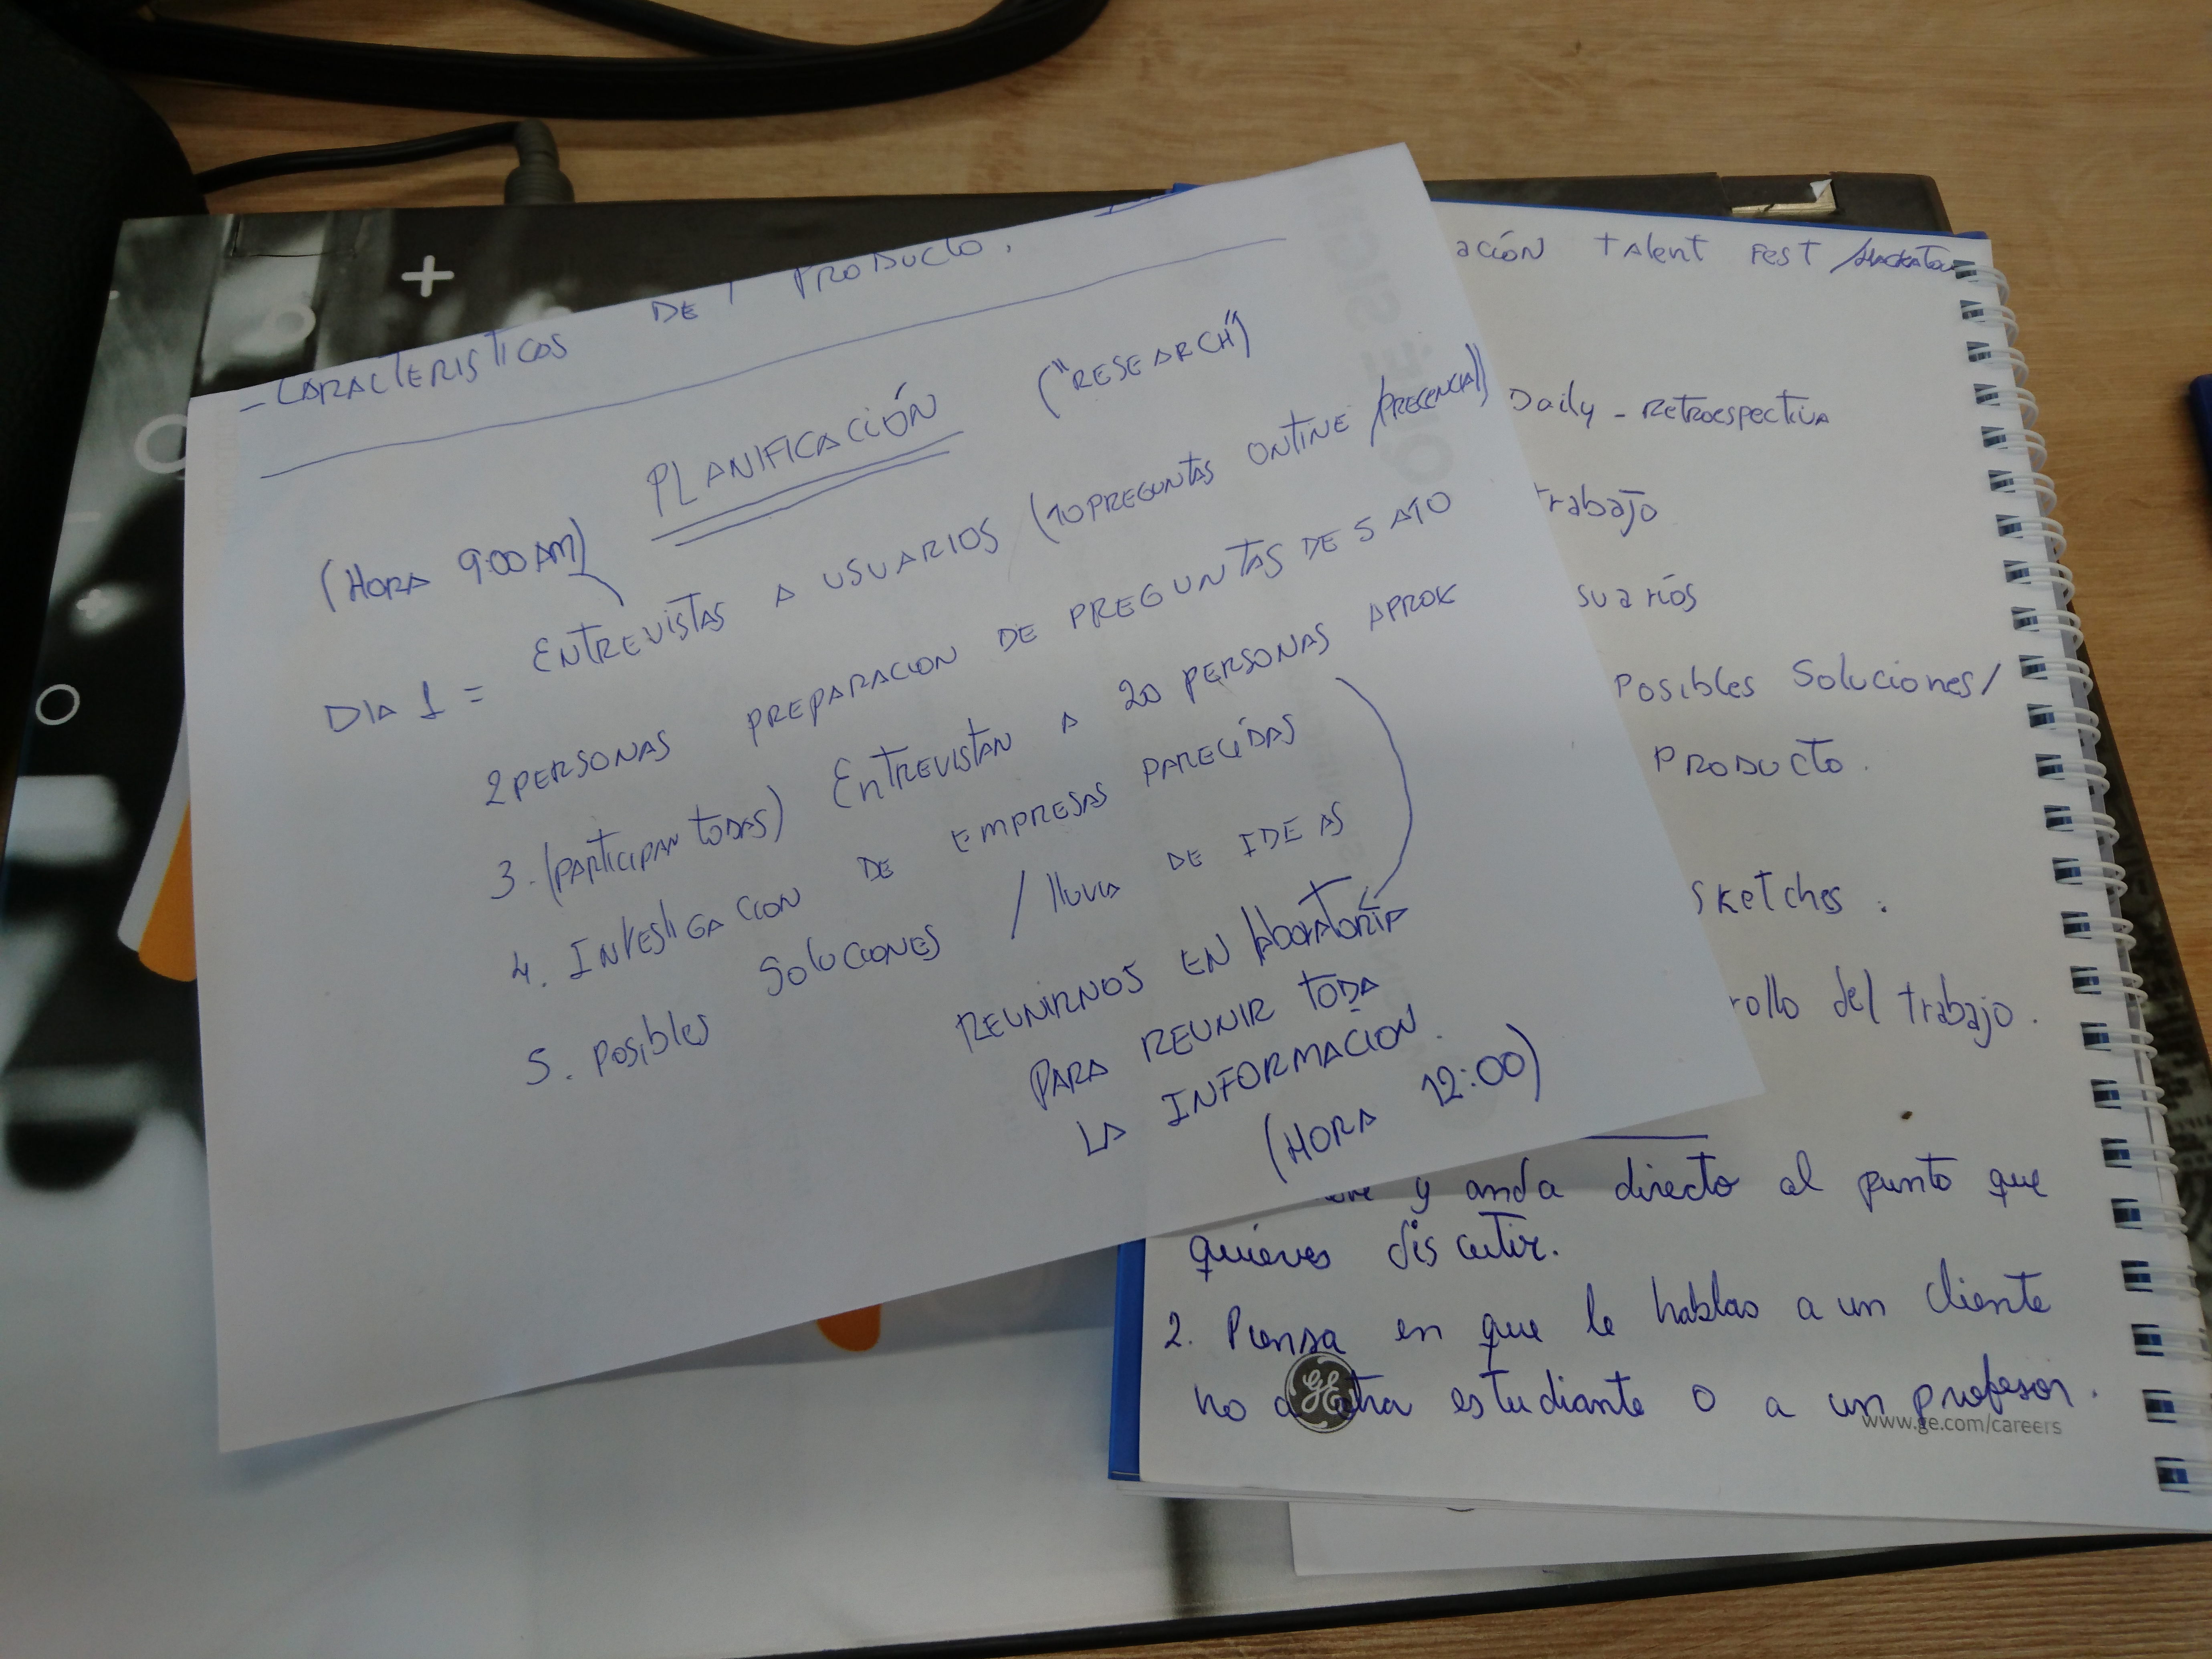 - CARACTERISTICOS DE PRODUCTO.
PLANIFICACIÓN ("RESEARCH")
(HORA 9:00 AM)
DIA 1 = ENTREVISTAS A USUARIOS (10 PREGUNTAS ONTINE /PRECENCIAL)
2 PERSONAS PREPARACION DE PREGUNTAS DE 5 A 10
3. (PARTICIPAN TODAS) ENTREVISTAN A 20 PERSONAS APROX
4. INVESTIGACION DE EMPRESAS PARECÍDAS
5. POSIbles SOlUCIONES / lluvia DE IDEAS
REUNIRNOS EN
PARA REUNIR TODA
LA INFORMACION.
(HORA 12:00)
ación talent Fest /
Daily - Retroespectiva
trabajo
suarios
Posibles Soluciones/
PRODUCTO.
Sketches.
rollo del trabajo.
y anda directo al punto que
quieres discutir.
2. Piensa en que le hablas a un cliente
no a otra estudiante o a un profesor.
GE
www.ge.com/careers